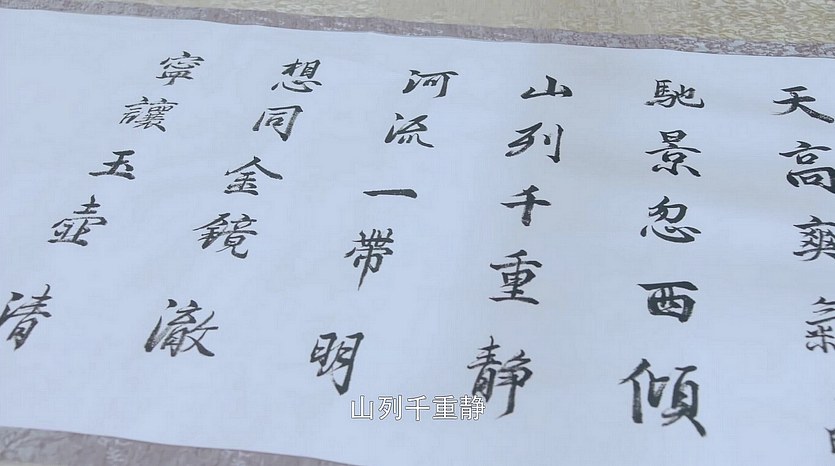 天高爽氣
馳景忽西傾
山列千重靜
河流一帶明
想同金鏡澈
寧讓玉壺清
山列千重静